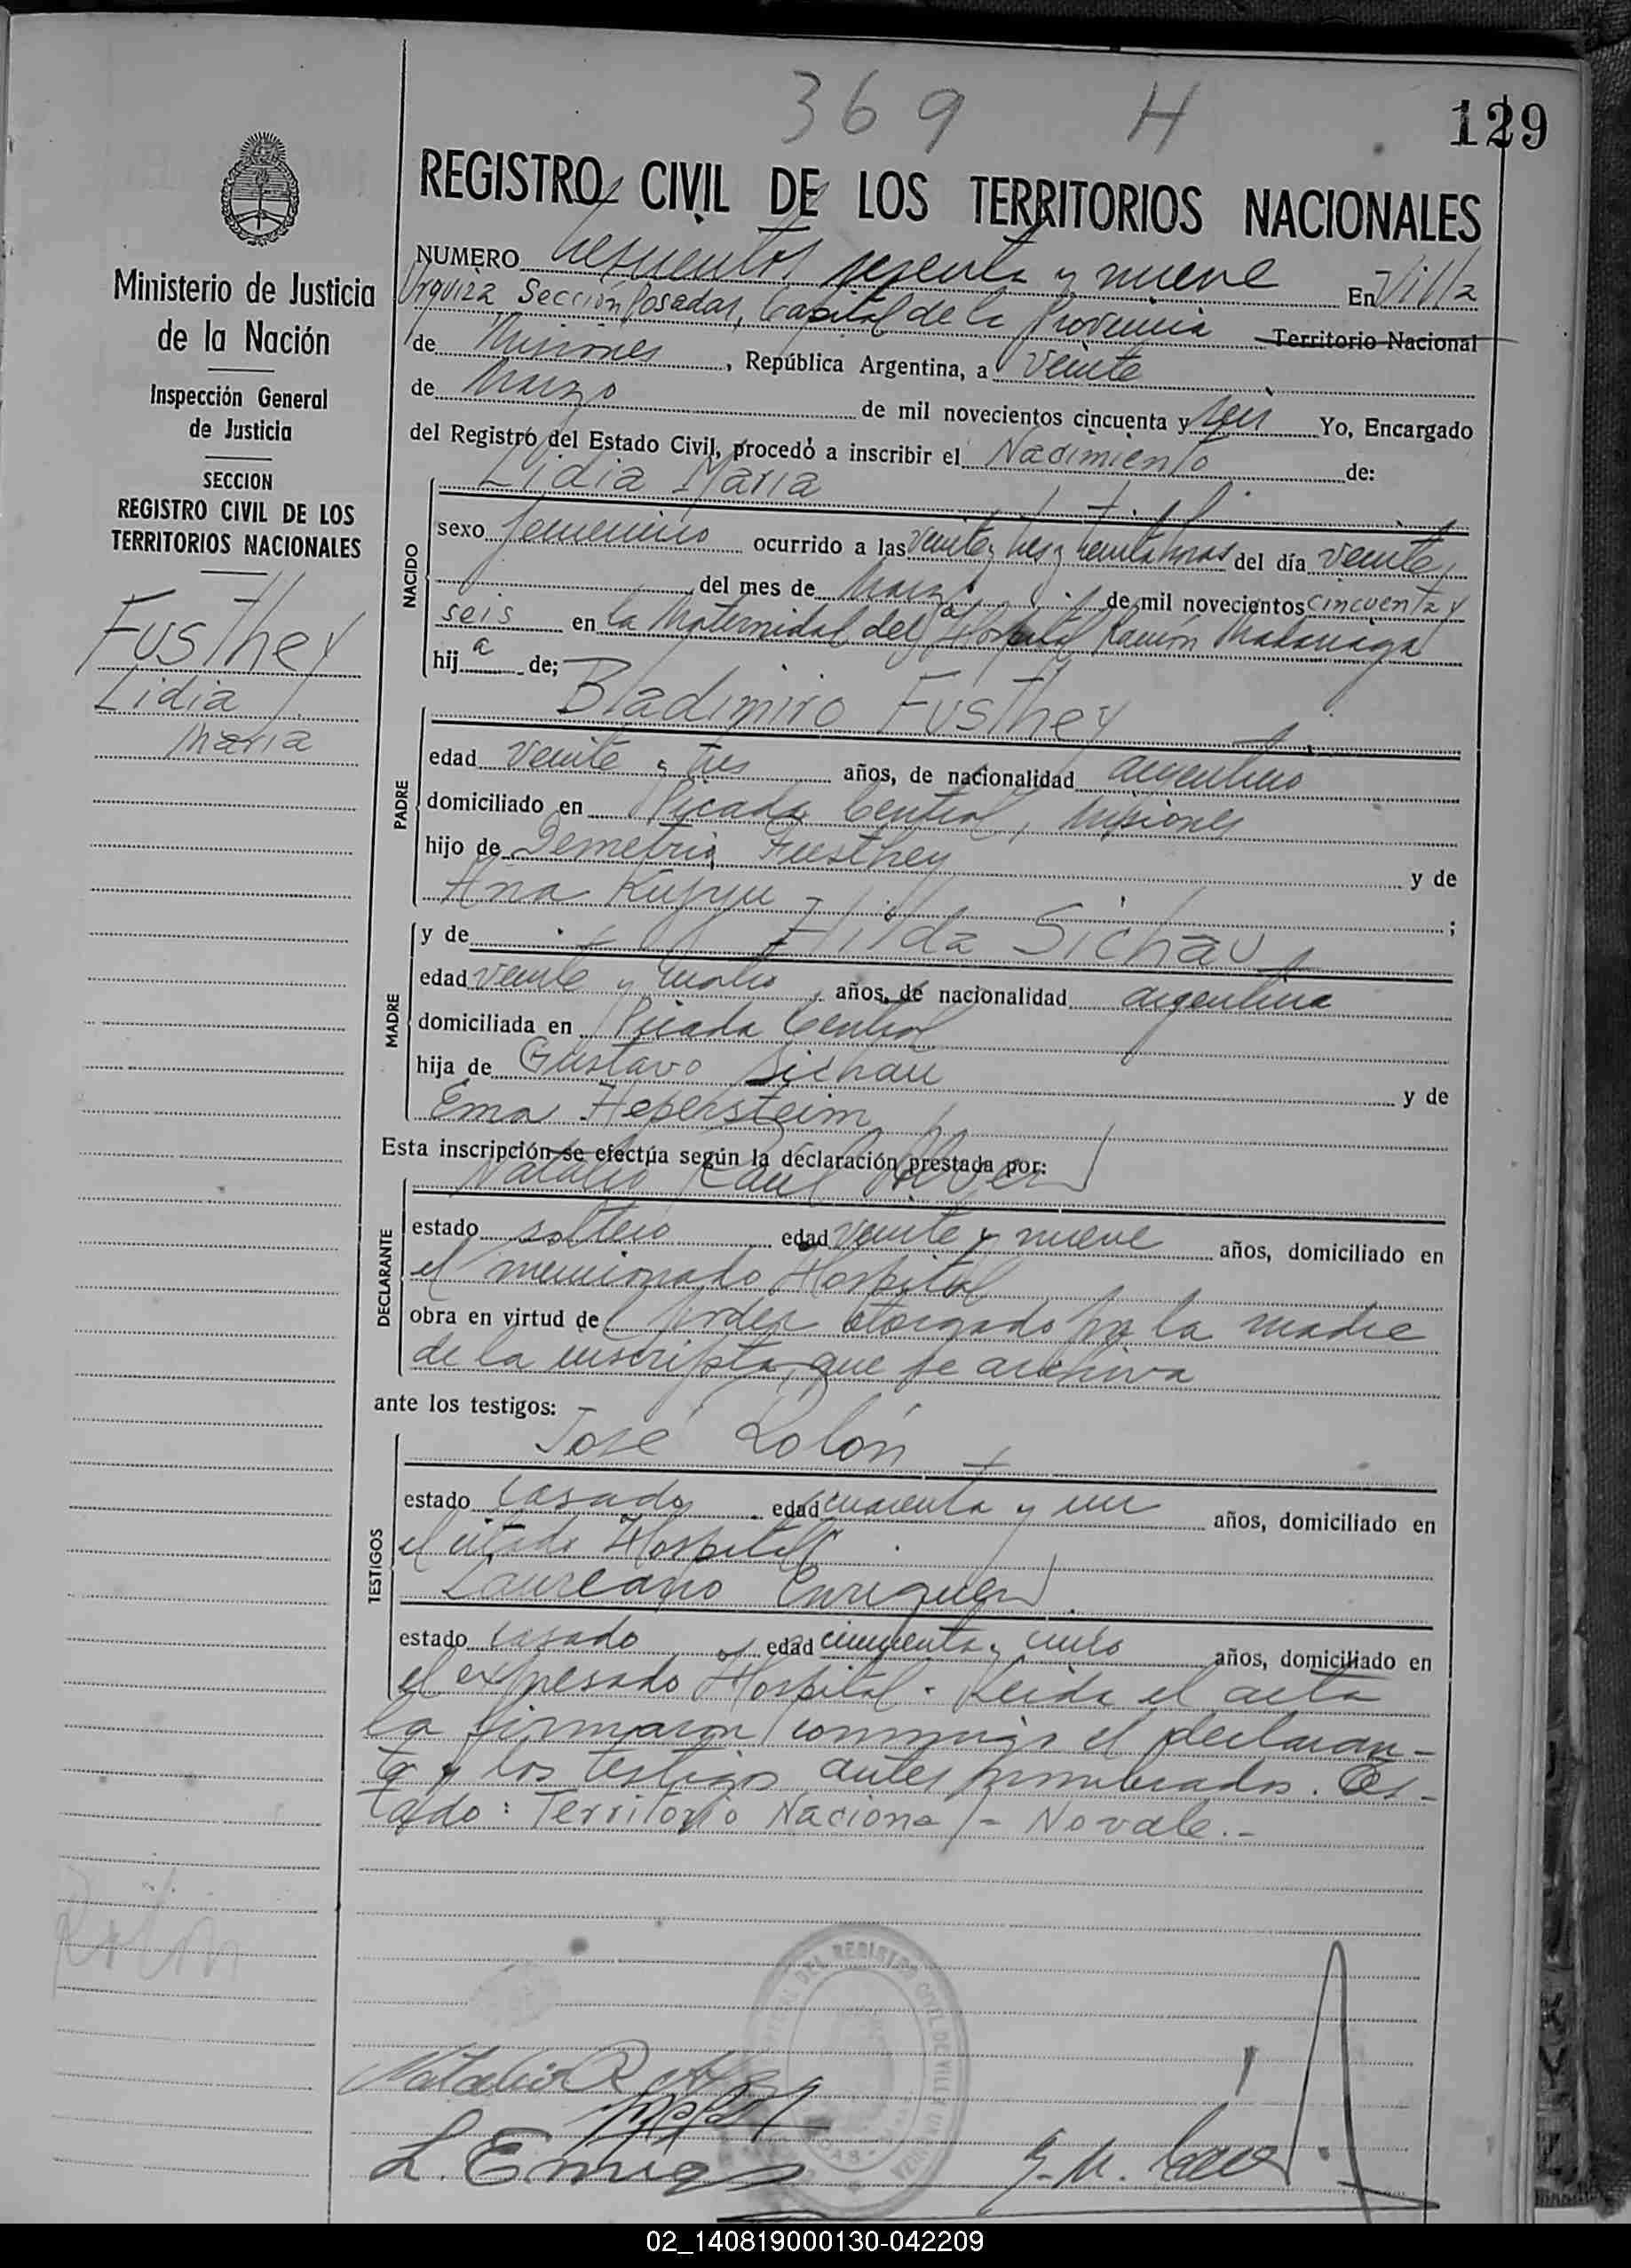 369 H
129
REGISTRO CIVIL DE LOS TERRITORIOS NACIONALES
Ministerio de Justicia
de la Nación
Inspección General
de Justicia
SECCION
REGISTRO CIVIL DE LOS
TERRITORIOS NACIONALES
Fusthey
Lidia
Maria
NUMERO trescientos sesenta y nueve En Villa
Urquiza Sección Posadas, Capital de la Provincia Territorio Nacional
de Misiones, República Argentina, a veinte
de Marzo de mil novecientos cincuenta y seis Yo, Encargado
del Registro del Estado Civil, procedo a inscribir el Nacimiento de:
NACIDO
Lidia Maria
sexo femenino ocurrido a las veinte y tres y treinta horas del día veinte
del mes de Marzo de mil novecientos cincuenta y
seis en la Maternidad del Hospital Ramón Madariaga
hija de;
PADRE
Bladimiro Fusthey
edad veinte y tres años, de nacionalidad argentino
domiciliado en Picada Central, Misiones
hijo de Demetrio Fusthey y de
Ana ;
MADRE
y de Hilda Sichau
edad veinte y cuatro años, de nacionalidad argentina
domiciliada en Picada Central
hija de Gustavo Sichau y de
Ema Hepersteim
Esta inscripción se efectúa según la declaración prestada por:
DECLARANTE
Natalio Raul
estado soltero edad veinte y nueve años, domiciliado en
el mencionado Hospital
obra en virtud de poder otorgado por la madre
de la inscripta, que se archiva
ante los testigos:
TESTIGOS
José Rolón
estado casado edad cuarenta y un años, domiciliado en
el citado Hospital
Laureano Enriquez
estado casado edad cincuenta y cinco años, domiciliado en
el expresado Hospital. Leida el acta
la firmaron conmigo el declaran-
te y los testigos antes nombrados. Es-
tado: Territorio Nacional - No vale.-
Rolón
Natalio R
L. Enriqz
02_140819000130-042209